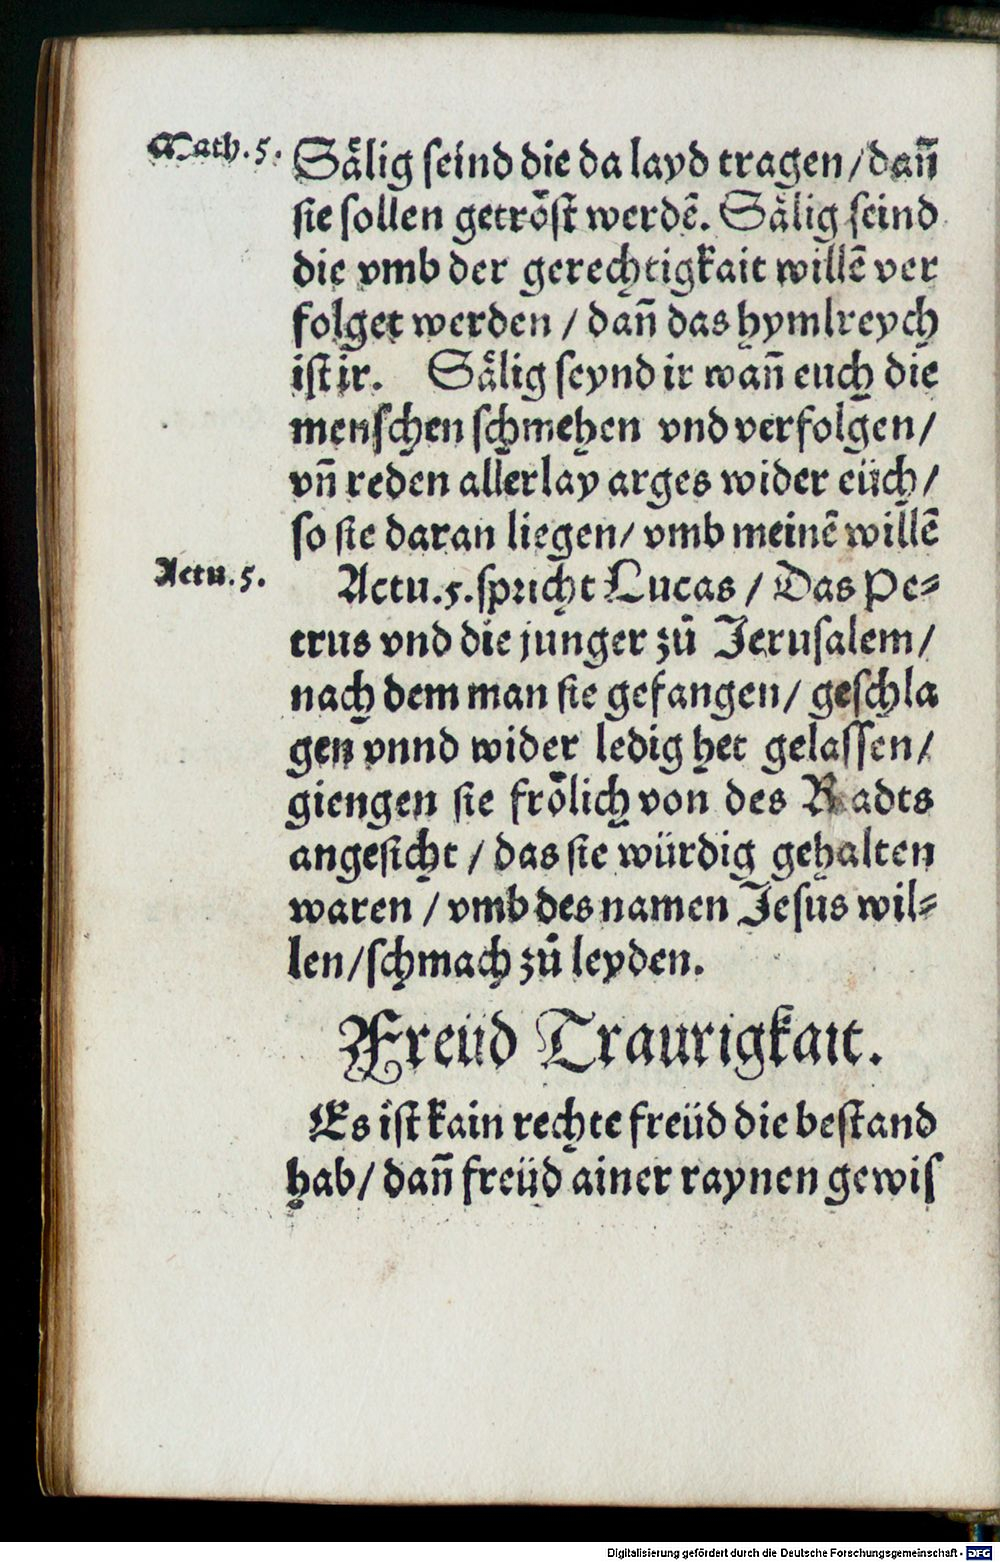 Math.5.
Sälig seind die da layd tragen/dañ
sie sollen getröst werdē. Sälig seind
die vmb der gerechtigkait willē ver
folget werden / dañ das hymlreych
ist ir. Sälig seynd ir wañ euch die
menschen schmehen vnd verfolgen/
vñ reden allerlay arges wider eüch/
so sie daran liegen/ vmb meinē willē
Actu.5.
Actu.5.spricht Lucas / Das Pe⸗
trus vnd die junger zů Jerusalem/
nach dem man sie gefangen/ geschla
gen vnnd wider ledig het gelassen/
giengen sie frölich von des Radts
angesicht / das sie würdig gehalten
waren / vmb des namen Jesus wil⸗
len/schmach zů leyden.
Freüd Traurigkait.
Es ist kain rechte freüd die bestand
hab/ dañ freüd ainer raynen gewis
Digitalisierung gefördert durch die Deutsche Forschungsgemeinschaft - DFG